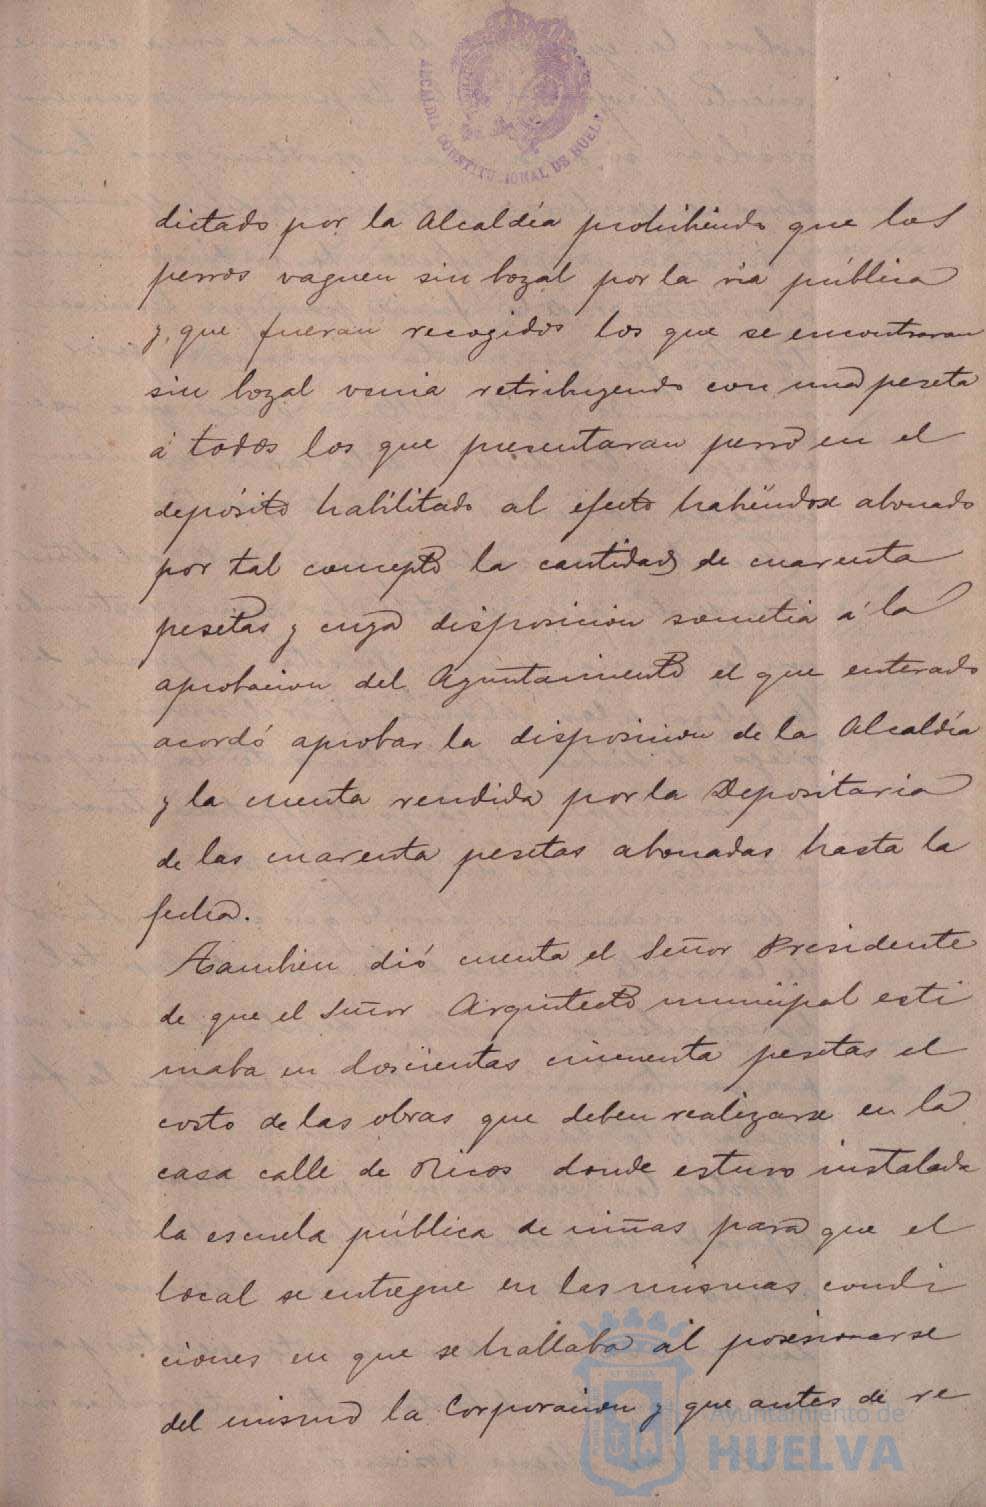 ALCALDIA CONSTITUCIONAL DE HUELVA
dictado por la Alcaldía prohibiendo que los
perros vaguen sin bozal por la via pública
y, que fueran recogidos los que se encontraran
sin bozal venia retribuyendo con una peseta
á todos los que presentaran perro en el
depósito habilitado al efecto habiéndose abonado
por tal concepto la cantidad de cuarenta
pesetas y cuya disposicion sometia á la
aprobacion del Ayuntamiento el que enterado
acordó aprobar la disposicion de la Alcaldía
y la cuenta rendida por la Depositaria
de las cuarenta pesetas abonadas hasta la
fecha.
Tambien dió cuenta el Señor Presidente
de que el Señor Arquitecto municipal esti
maba en doscientas cincuenta pesetas el
costo de las obras que deben realizarse en la
casa calle de Ricos donde estuvo instalada
la escuela pública de niñas para que el
local se entregue en las mismas condi
ciones en que se hallaba al posesionarse
del mismo la Corporacion y que antes de re
Ayuntamiento de
HUELVA